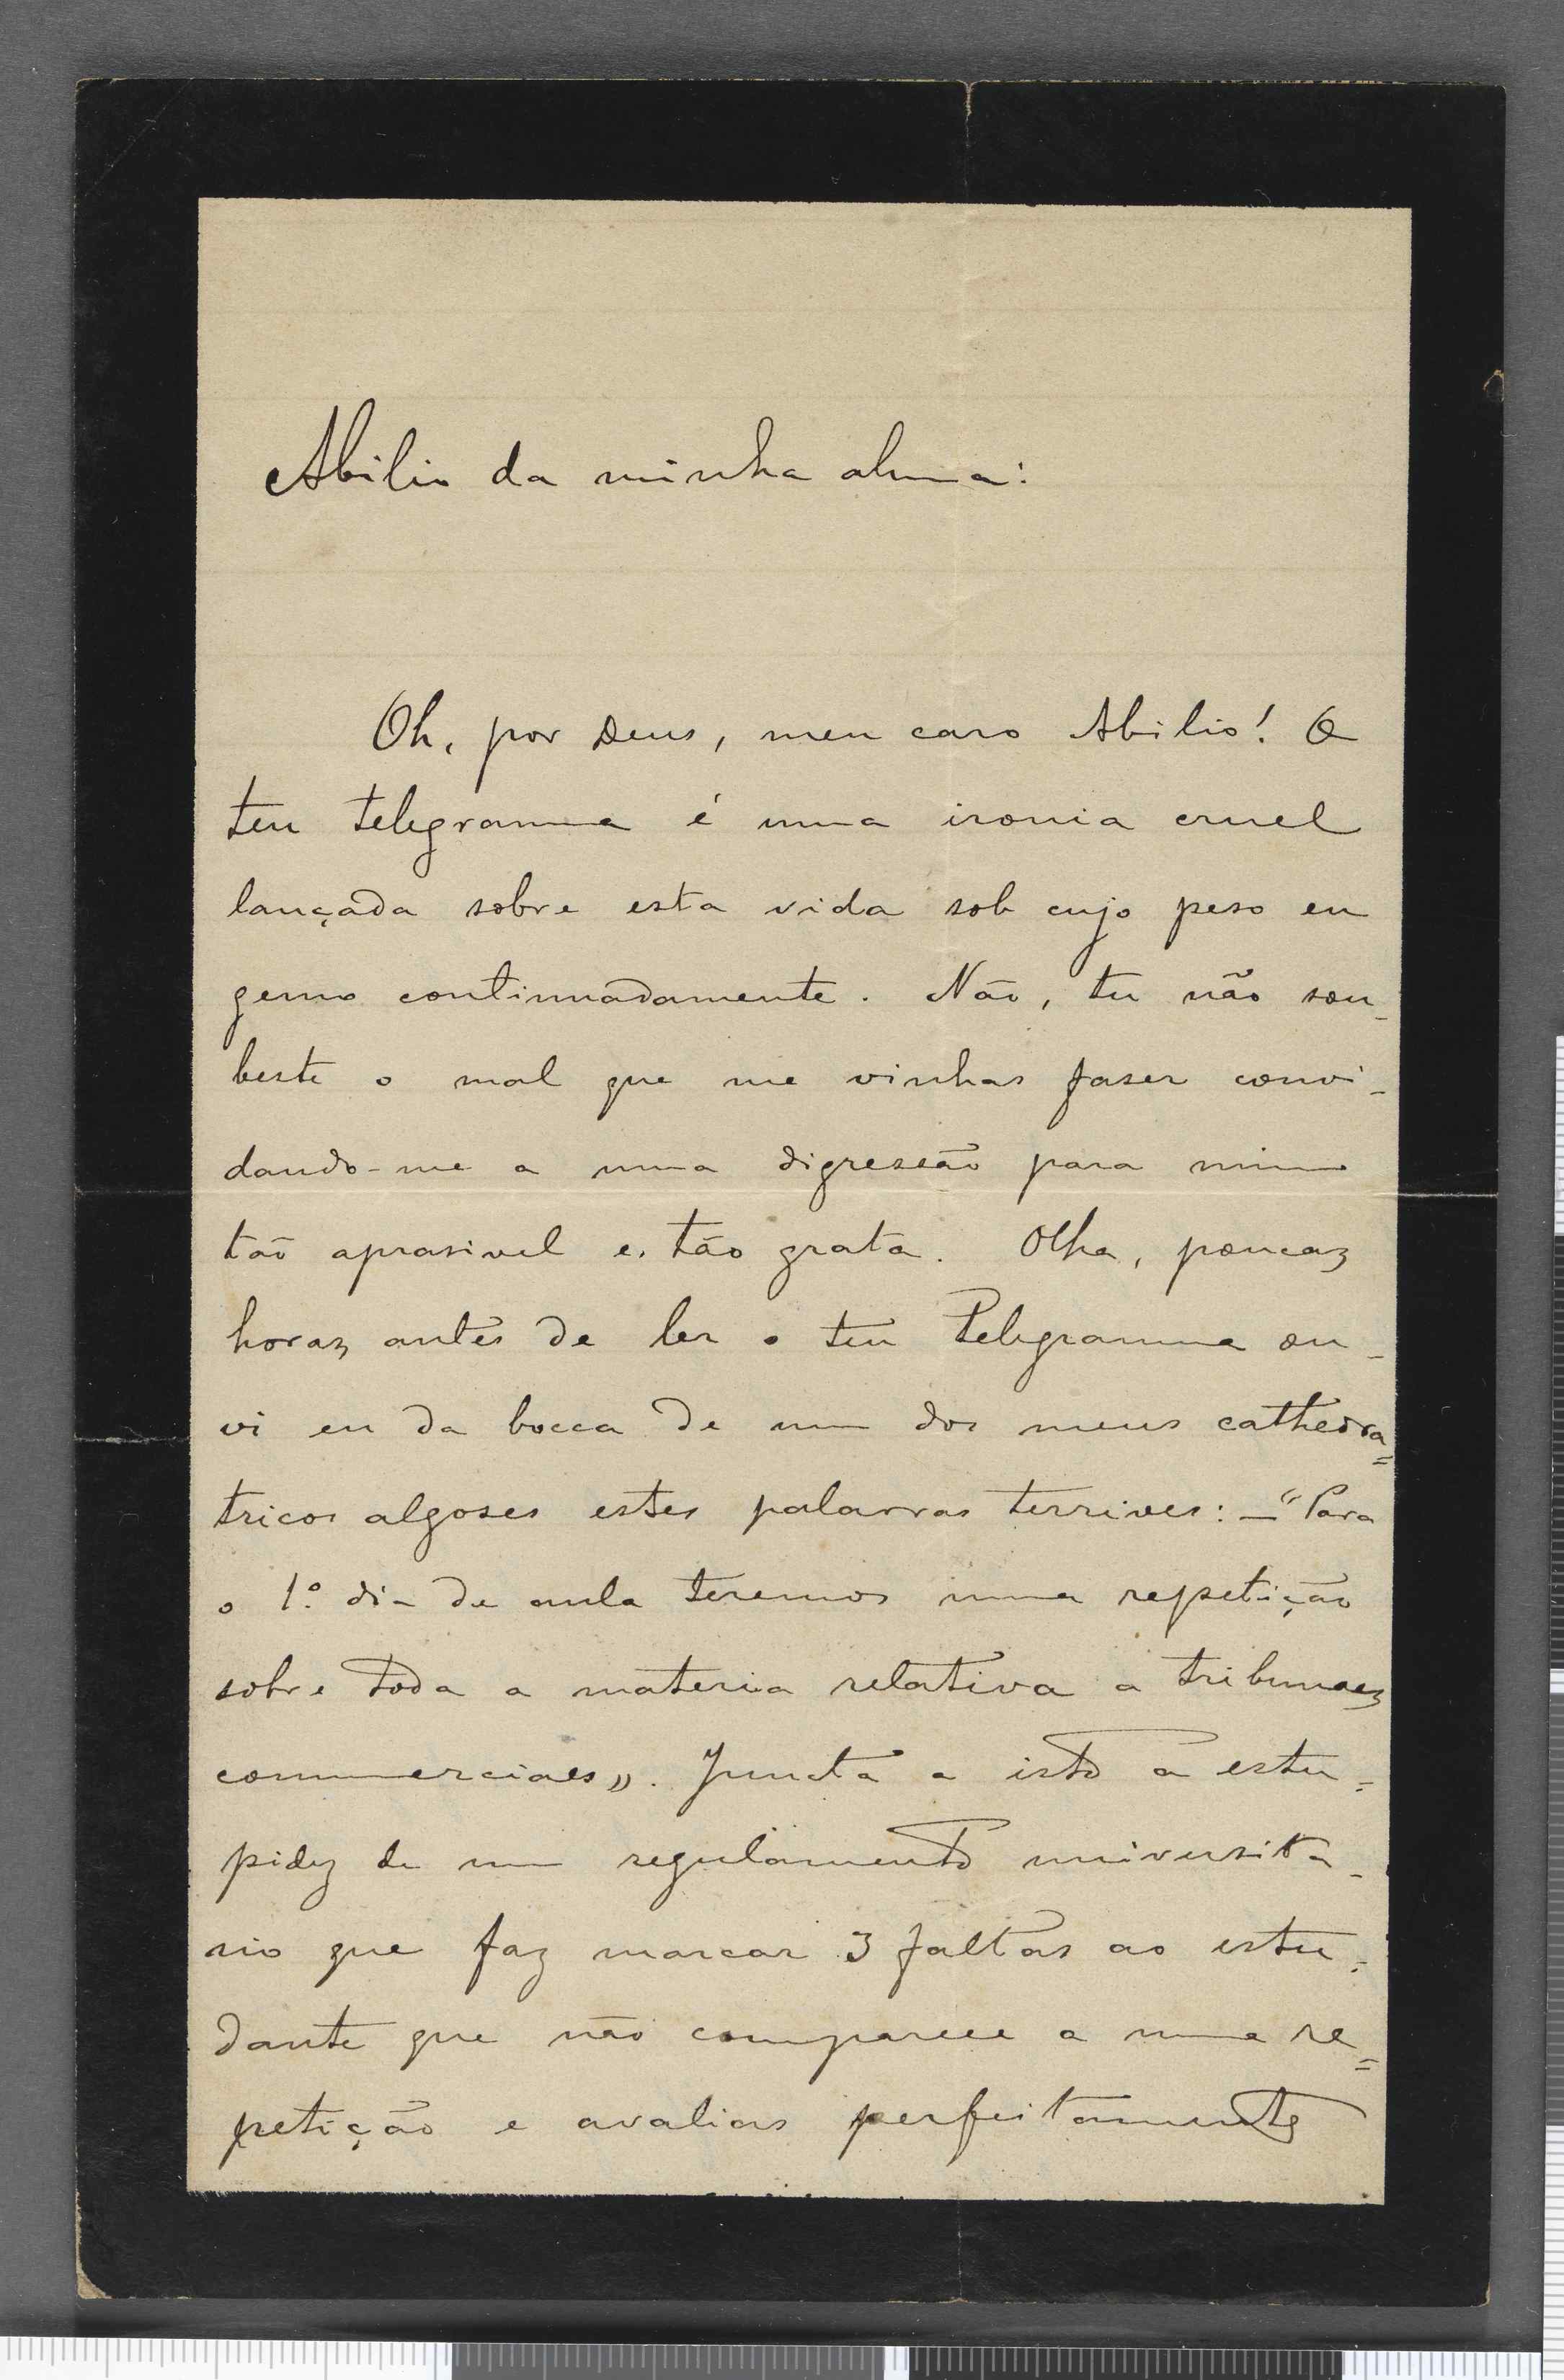 Abilio da minha alma:
Oh, por Deus, meu caro Abilio! O
teu telegramma é uma ironia cruel
lançada sobre esta vida sob cujo peso eu
gemo continuadamente. Não, tu não sou-
beste o mal que me vinhas faser convi-
dando-me a uma digressão para mim
tão aprasivel e tão grata. Olha, poucas
horas antes de ler o teu telegramma ou-
vi eu da bocca de um dos meus cathedra=
ticos algoses estas palavras terriveis: — "Para
o 1º dia de aula teremos uma repetição
sobre toda a materia relativa a tribunaes
commerciaes». Juncta a isto a estu=
pidez de um regulamento universita-
rio que faz marcar 3 faltas ao estu=
dante que não comparece a uma re=
petição e avalias perfeitamente